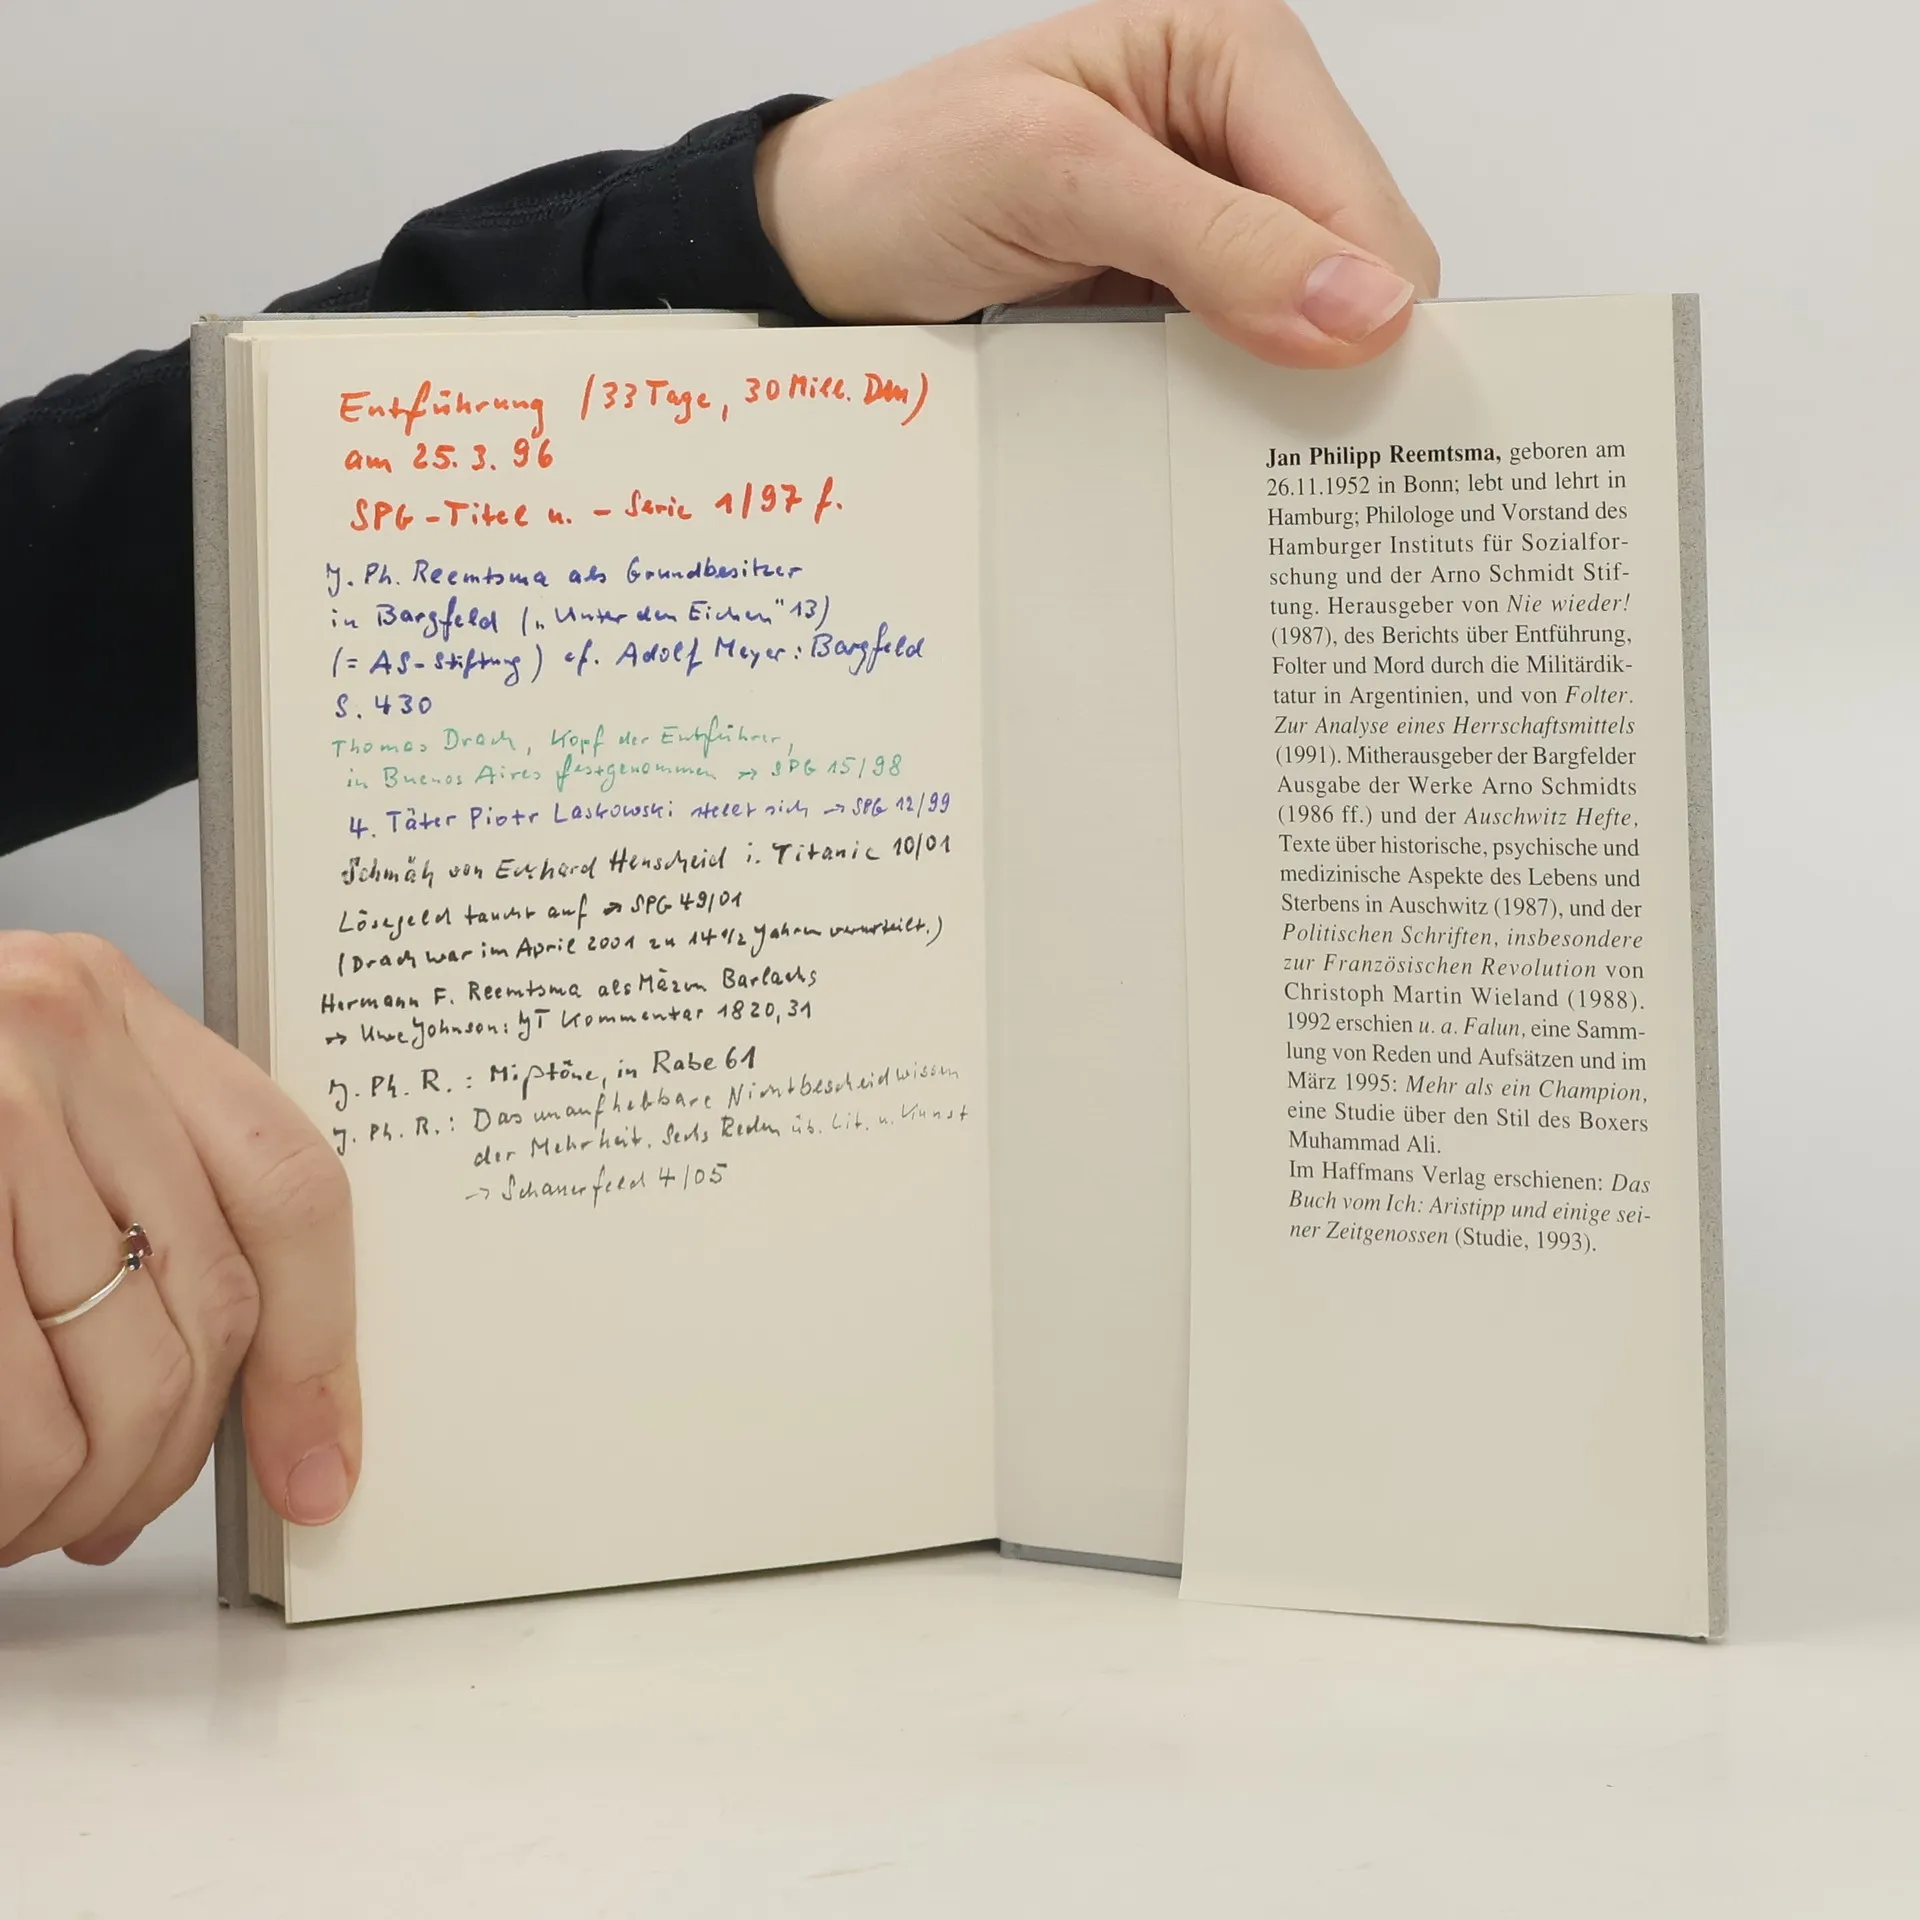 Entführung (33 Tage, 30 Mill. DM)
am 25.3.96
SPG-Titel u. -Serie 1/97 f.
J. Ph. Reemtsma als Grundbesitzer
in Bargfeld („Unter den Eichen" 13)
(= AS-Stiftung) cf. Adolf Meyer: Bargfeld
S. 430
Thomas Drach, Kopf der Entführer,
in Buenos Aires festgenommen → SPG 15/98
4. Täter Piotr Laskowski stellt sich → SPG 12/99
Schmäh von Eckhard Henscheid i. Titanic 10/01
Lösegeld taucht auf → SPG 49/01
(Drach war im April 2001 zu 14 1/2 Jahren verurteilt.)
Hermann F. Reemtsma als Mäzen Barlachs
→ Uwe Johnson: JT Kommentar 1820,31
J. Ph. R.: Mißtöne, in Rabe 61
J. Ph. R.: Das unaufhebbare Nichtbescheidwissen
der Mehrheit. Sechs Reden üb. Lit. u. Kunst
→ Schauerfeld 4/05
Jan Philipp Reemtsma, geboren am
26.11.1952 in Bonn; lebt und lehrt in
Hamburg; Philologe und Vorstand des
Hamburger Instituts für Sozialfor-
schung und der Arno Schmidt Stif-
tung. Herausgeber von Nie wieder!
(1987), des Berichts über Entführung,
Folter und Mord durch die Militärdik-
tatur in Argentinien, und von Folter.
Zur Analyse eines Herrschaftsmittels
(1991). Mitherausgeber der Bargfelder
Ausgabe der Werke Arno Schmidts
(1986 ff.) und der Auschwitz Hefte,
Texte über historische, psychische und
medizinische Aspekte des Lebens und
Sterbens in Auschwitz (1987), und der
Politischen Schriften, insbesondere
zur Französischen Revolution von
Christoph Martin Wieland (1988).
1992 erschien u. a. Falun, eine Samm-
lung von Reden und Aufsätzen und im
März 1995: Mehr als ein Champion,
eine Studie über den Stil des Boxers
Muhammad Ali.
Im Haffmans Verlag erschienen: Das
Buch vom Ich: Aristipp und einige sei-
ner Zeitgenossen (Studie, 1993).